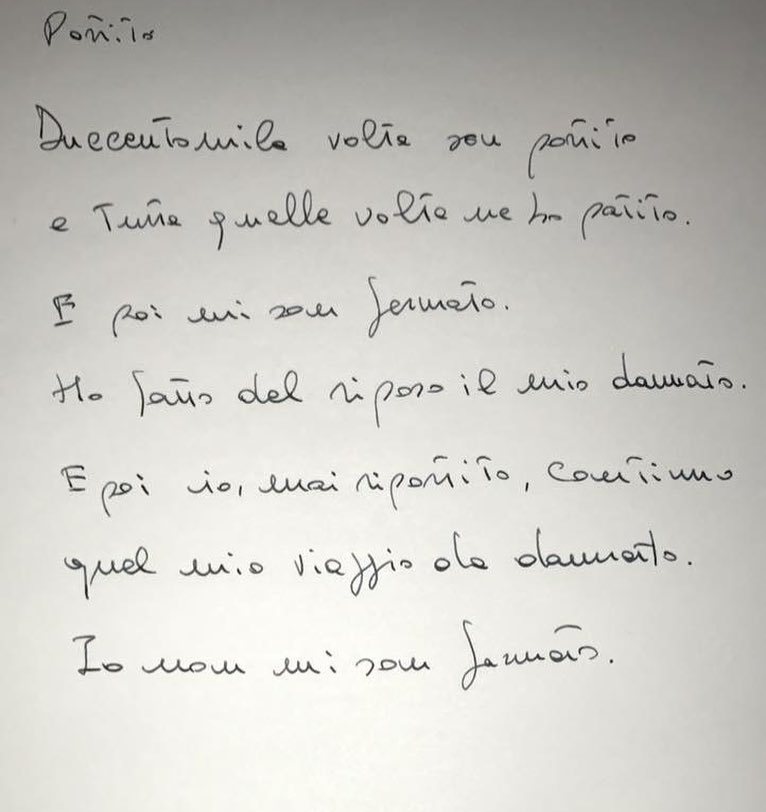 Partito
Duecentomila volte son partito
e tutte quelle volte ne ho patito.
E poi mi son fermato.
Ho fatto del riposo il mio dannato.
E poi io, mai ripartito, continuo
quel mio viaggio da dannato.
Io non mi son fermato.